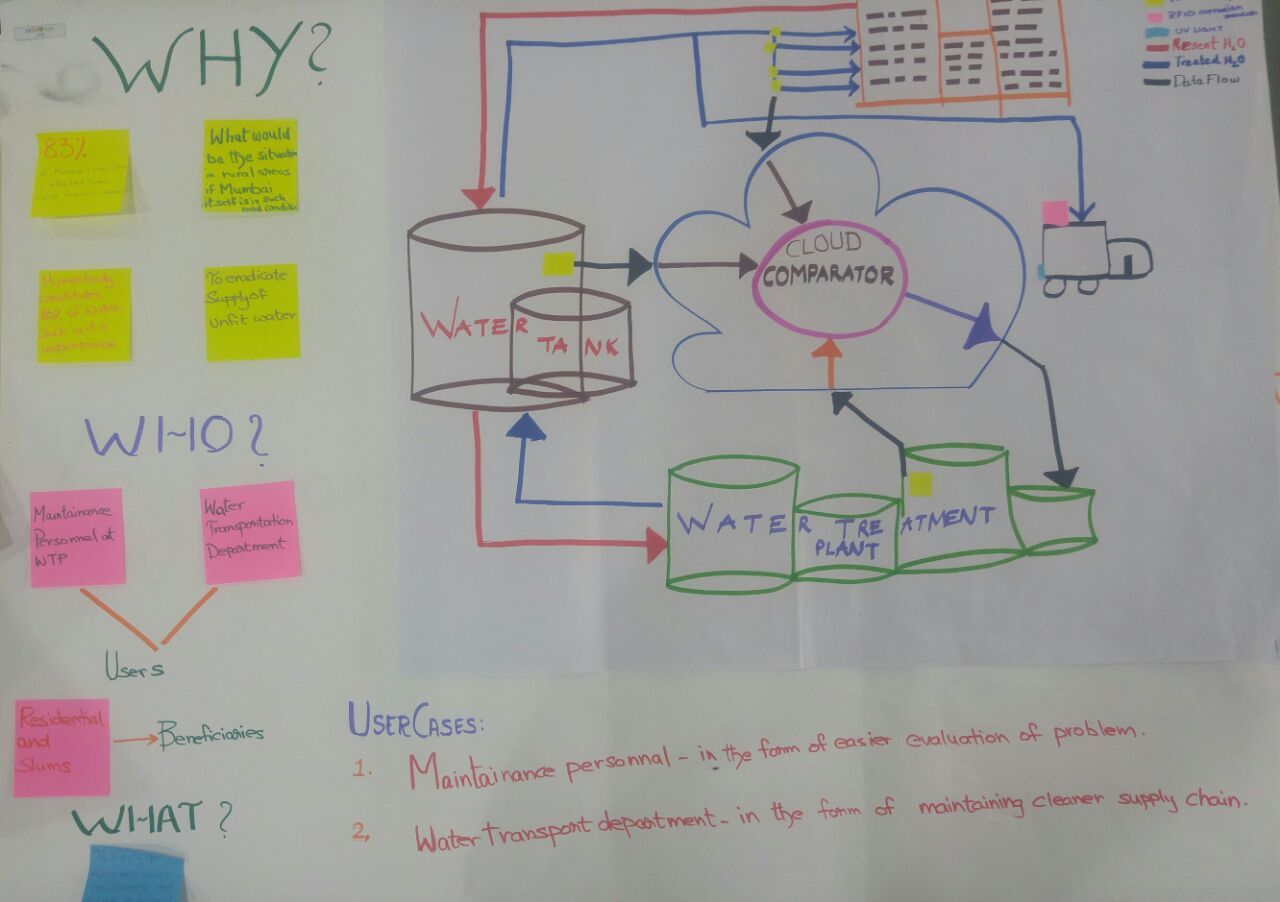 WHY?
83%
What would
be the situation
in rural areas
if Mumbai
itself is in such
Human body
constitutes
80% of water.
Such is it's
importance
To eradicate
Supply of
unfit water
WHO?
Maintainance
Personnel at
WTP
Water
Transportation
Department
Users
Residential
and
Slums
Beneficiaries
WHAT?
RFID corrosion
UV LIGHT
Resent H2O
Treated H2O
Data Flow
CLOUD
COMPARATOR
WATER
TANK
WATER TREATMENT
PLANT
USERCASES:
1. Maintainance personnal - in the form of easier evaluation of problem.
2, Water transport department - in the form of maintaining cleaner supply chain.